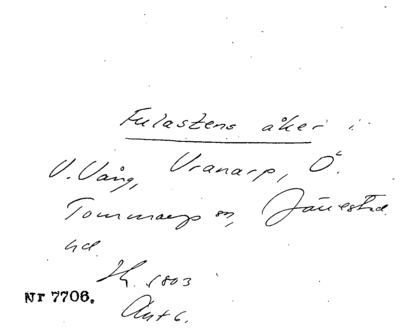 Fulastens åker i
V. Vång, Vranarp, Ö.
Tommarp sn, Järrestad
hd.
Sk. 1803
Akt 6.
Nr 7706.